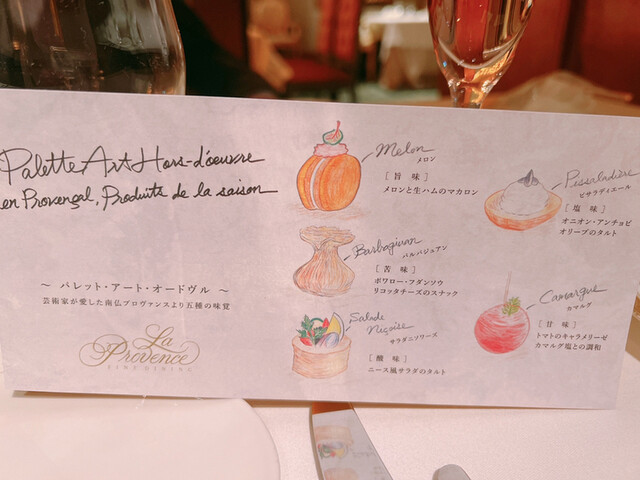 Palette Art Hors-d'oeuvre
en Provençal, Produits de la saison
～ パレット・アート・オードヴル ～
芸術家が愛した南仏プロヴァンスより五種の味覚
La Provence
FINE DINING
Melon
メロン
［旨 味］
メロンと生ハムのマカロン
Barbagiuan
バルバジュアン
［苦 味］
ポワロー・フダンソウ
リコッタチーズのスナック
Salade Niçoise
サラダニソワーズ
［酸 味］
ニース風サラダのタルト
Pissaladière
ピサラディエール
［塩 味］
オニオン・アンチョビ
オリーブのタルト
Camargue
カマルグ
［甘 味］
トマトのキャラメリーゼ
カマルグ塩との調和